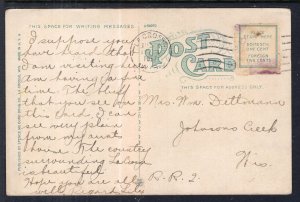 THIS SPACE FOR WRITING MESSAGES.
POST CARD
THIS SPACE FOR ADDRESS ONLY.
I suppose you
have heard that I
am visiting here
am having a fine
time. The bluff
that you see on
this card, I can
see very plain
from my aunt's
house. The country
surrounding La Cross
is beautiful
Hope you are all
well, regards
Mrs. Wm. Dettmann
Johnsons Creek
Wis.
R.R. 2